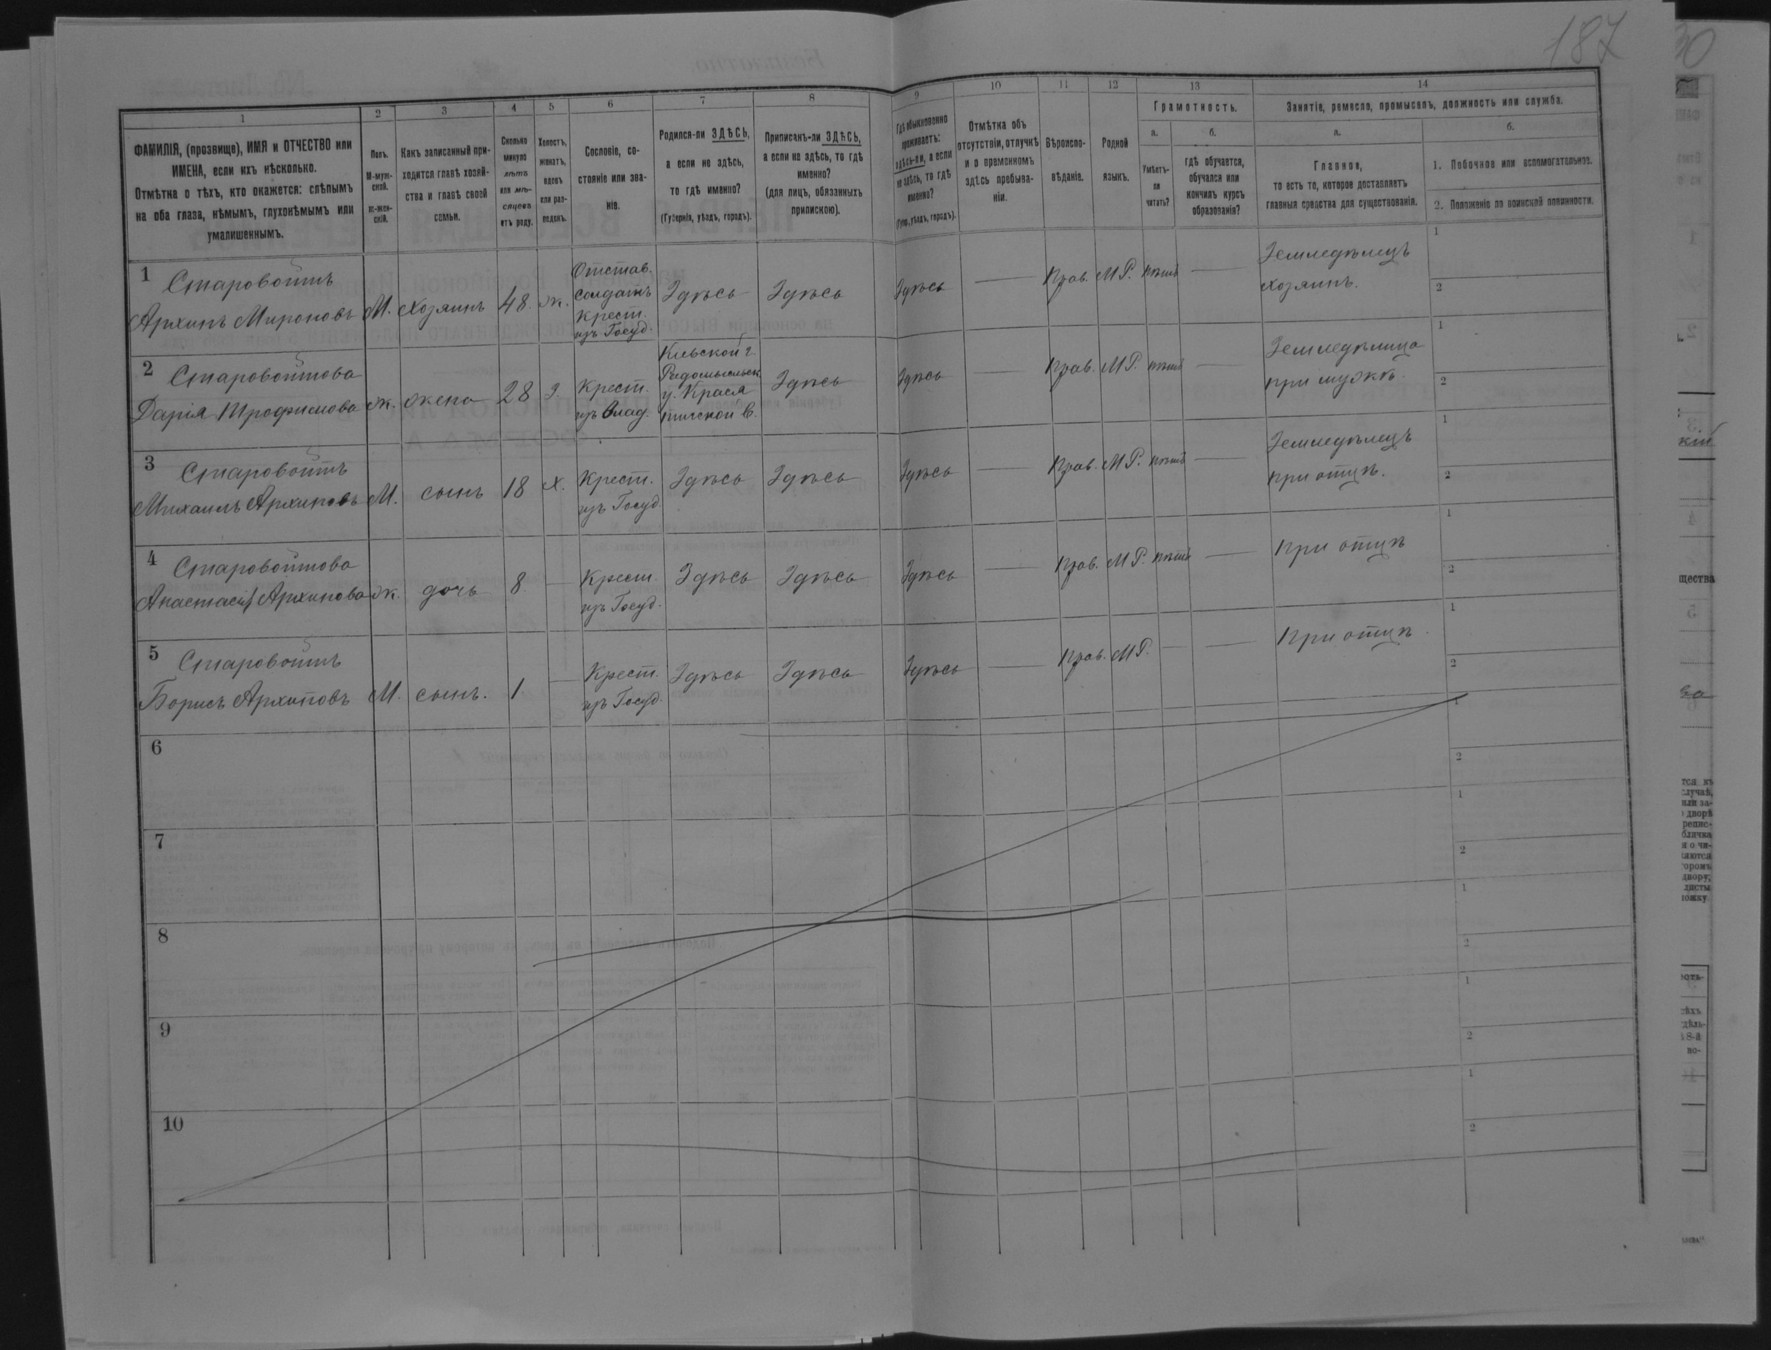 187
1
2
3
4
5
6
7
8
9
10
11
12
13
14
ФАМИЛІЯ, (прозвище), ИМЯ и ОТЧЕСТВО или
ИМЕНА, если ихъ нѣсколько.
Отмѣтка о тѣхъ, кто окажется: слѣпымъ
на оба глаза, нѣмымъ, глухонѣмымъ или
умалишеннымъ.
Полъ.
М-муж-
ской.
Ж-жен-
скій.
Какъ записанный при-
ходится главѣ хозяй-
ства и главѣ своей
семьи.
Сколько
минуло
лѣтъ
или мѣ-
сяцевъ
отъ роду.
Холостъ,
женатъ,
вдовъ
или раз-
веденъ.
Сословіе, со-
стояніе или зва-
ніе.
Родился-ли ЗДѢСЬ,
а если не здѣсь,
то гдѣ именно?
(Губернія, уѣздъ, городъ).
Приписанъ-ли ЗДѢСЬ,
а если не здѣсь, то гдѣ
именно?
(для лицъ, обязанныхъ
припискою).
Гдѣ обыкновенно
проживаетъ:
здѣсь-ли, а если
не здѣсь, то гдѣ
именно?
(Губ., уѣздъ, городъ).
Отмѣтка объ
отсутствіи, отлучкѣ
и о временномъ
здѣсь пребыва-
ніи.
Вѣроиспо-
вѣданіе.
Родной
языкъ.
Грамотность.
а.
Умѣетъ-
ли
читать?
б.
гдѣ обучается,
обучался или
кончилъ курсъ
образованія?
Занятіе, ремесло, промыселъ, должность или служба.
а.
Главное,
то есть то, которое доставляетъ
главныя средства для существованія.
б.
1. Побочное или вспомогательное.
2. Положеніе по воинской повинности.
1
Старовойтъ
Архипъ Мироновъ
М.
Хозяинъ
48.
ж.
Отстав.
солдатъ
Крест.
изъ Госуд.
Здѣсь
Здѣсь
Здѣсь
Прав.
М.Р.
Земледѣлецъ
хозяинъ.
1
2
2
Старовойтова
Дарія Трофимова
ж.
жена
28
з.
Крест.
изъ Влад.
Кіевской г.
Радомысльск
у.
Здѣсь
Здѣсь
Прав.
М.Р.
Земледѣлица
при мужѣ.
1
2
3
Старовойтъ
Михаилъ Архиповъ
М.
сынъ
18
х.
Крест.
изъ Госуд.
Здѣсь
Здѣсь
Здѣсь
Прав.
М.Р.
Земледѣлецъ
при отцѣ.
1
2
4
Старовойтова
Анастасія Архипова
ж.
дочь
8
Крест.
изъ Госуд.
Здѣсь
Здѣсь
Здѣсь
Прав.
М.Р.
При отцѣ
1
2
5
Старовойтъ
Борисъ Архиповъ
М.
сынъ.
1
Крест.
изъ Госуд.
Здѣсь
Здѣсь
Здѣсь
Прав.
М.Р.
При отцѣ.
1
2
6
1
2
7
1
2
8
1
2
9
1
2
10
1
2